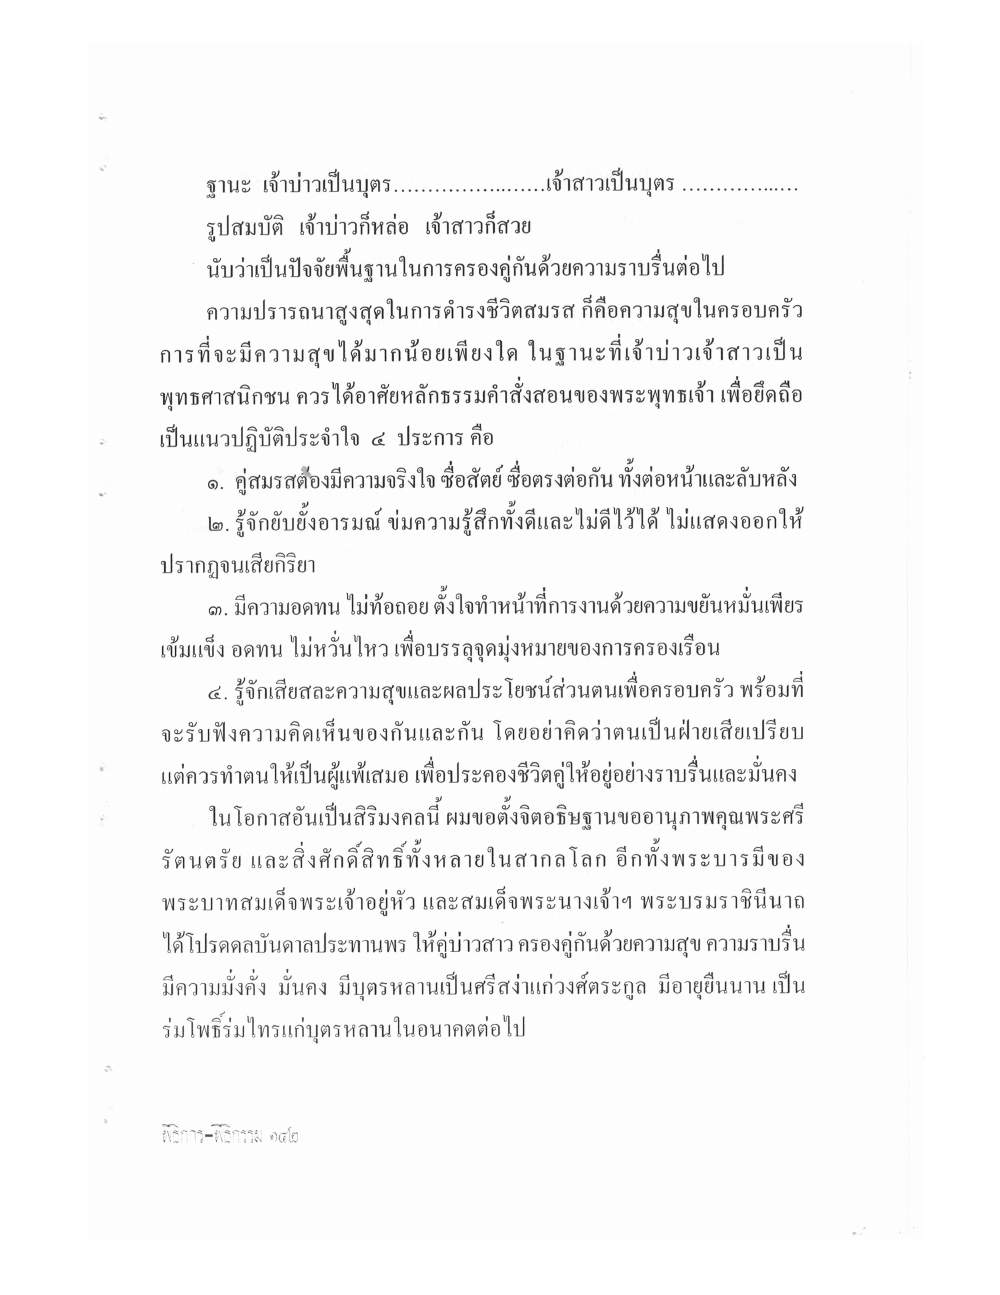 ฐานะ เจ้าบ่าวเป็นบุตร......................เจ้าสาวเป็นบุตร .................
รูปสมบัติ เจ้าบ่าวก็หล่อ เจ้าสาวก็สวย
นับว่าเป็นปัจจัยพื้นฐานในการครองคู่กันด้วยความราบรื่นต่อไป
ความปรารถนาสูงสุดในการดำรงชีวิตสมรส ก็คือความสุขในครอบครัว
การที่จะมีความสุขได้มากน้อยเพียงใด ในฐานะที่เจ้าบ่าวเจ้าสาวเป็น
พุทธศาสนิกชน ควรได้อาศัยหลักธรรมคำสั่งสอนของพระพุทธเจ้า เพื่อยึดถือ
เป็นแนวปฏิบัติประจำใจ ๔ ประการ คือ
๑. คู่สมรสต้องมีความจริงใจ ซื่อสัตย์ ซื่อตรงต่อกัน ทั้งต่อหน้าและลับหลัง
๒. รู้จักยับยั้งอารมณ์ ข่มความรู้สึกทั้งดีและไม่ดีไว้ได้ ไม่แสดงออกให้
ปรากฏจนเสียกิริยา
๓. มีความอดทน ไม่ท้อถอย ตั้งใจทำหน้าที่การงานด้วยความขยันหมั่นเพียร
เข้มแข็ง อดทน ไม่หวั่นไหว เพื่อบรรลุจุดมุ่งหมายของการครองเรือน
๔. รู้จักเสียสละความสุขและผลประโยชน์ส่วนตนเพื่อครอบครัว พร้อมที่
จะรับฟังความคิดเห็นของกันและกัน โดยอย่าคิดว่าตนเป็นฝ่ายเสียเปรียบ
แต่ควรทำตนให้เป็นผู้แพ้เสมอ เพื่อประคองชีวิตคู่ให้อยู่อย่างราบรื่นและมั่นคง
ในโอกาสอันเป็นสิริมงคลนี้ ผมขอตั้งจิตอธิษฐานขออานุภาพคุณพระศรี
รัตนตรัย และสิ่งศักดิ์สิทธิ์ทั้งหลายในสากลโลก อีกทั้งพระบารมีของ
พระบาทสมเด็จพระเจ้าอยู่หัว และสมเด็จพระนางเจ้าฯ พระบรมราชินีนาถ
ได้โปรดดลบันดาลประทานพร ให้คู่บ่าวสาว ครองคู่กันด้วยความสุข ความราบรื่น
มีความมั่งคั่ง มั่นคง มีบุตรหลานเป็นศรีสง่าแก่วงศ์ตระกูล มีอายุยืนนาน เป็น
ร่มโพธิ์ร่มไทรแก่บุตรหลานในอนาคตต่อไป
พิธีการ-พิธีกรรม ๑๔๒